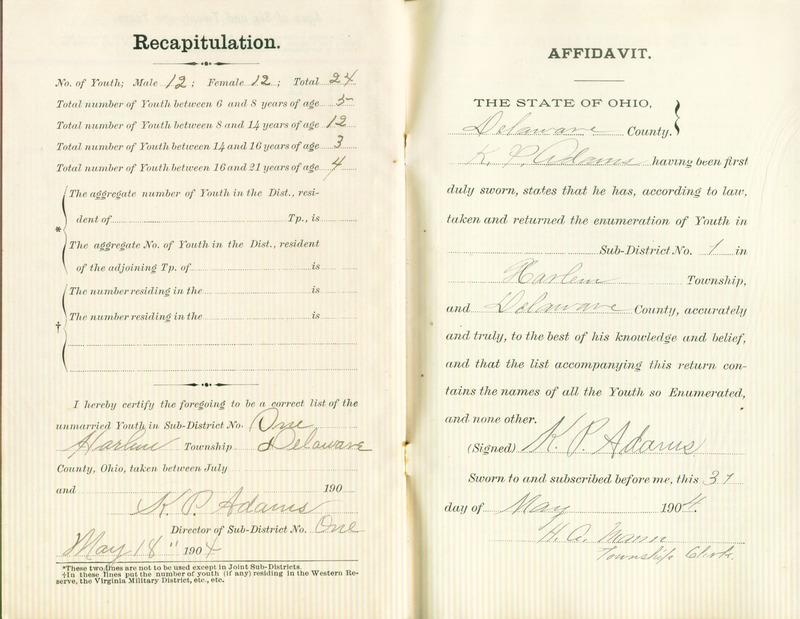 Recapitulation.
No. of Youth; Male 12; Female 12; Total 24
Total number of Youth between 6 and 8 years of age 5
Total number of Youth between 8 and 14 years of age 12
Total number of Youth between 14 and 16 years of age 3
Total number of Youth between 16 and 21 years of age 4
The aggregate number of Youth in the Dist., resi-
dent of Tp., is
*
The aggregate No. of Youth in the Dist., resident
of the adjoining Tp. of is
The number residing in the is
†
The number residing in the is
I hereby certify the foregoing to be a correct list of the
unmarried Youth in Sub-District No. One
Harlem Township Delaware
County, Ohio, taken between July
and 190
K. P. Adams
Director of Sub-District No. One
May 18" 1904
*These two lines are not to be used except in Joint Sub-Districts.
†In these lines put the number of youth (if any) residing in the Western Re-
serve, the Virginia Military District, etc., etc.
AFFIDAVIT.
THE STATE OF OHIO,
Delaware County.
K. P. Adams having been first
duly sworn, states that he has, according to law,
taken and returned the enumeration of Youth in
Sub-District No. 1 in
Harlem Township,
and Delaware County, accurately
and truly, to the best of his knowledge and belief,
and that the list accompanying this return con-
tains the names of all the Youth so Enumerated,
and none other.
(Signed) K. P. Adams
Sworn to and subscribed before me, this 31
day of May 1904.
H. A. Mann
Township Clerk.